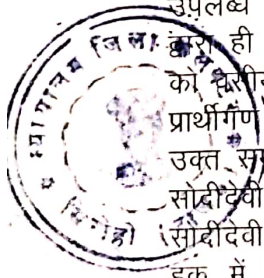 उपलब्ध
द्वारा ही
को
प्रार्थीगण
उक्त
सोदीदेवी
सोदीदेवी
हक में
न्यायालय जिला
सिरोही